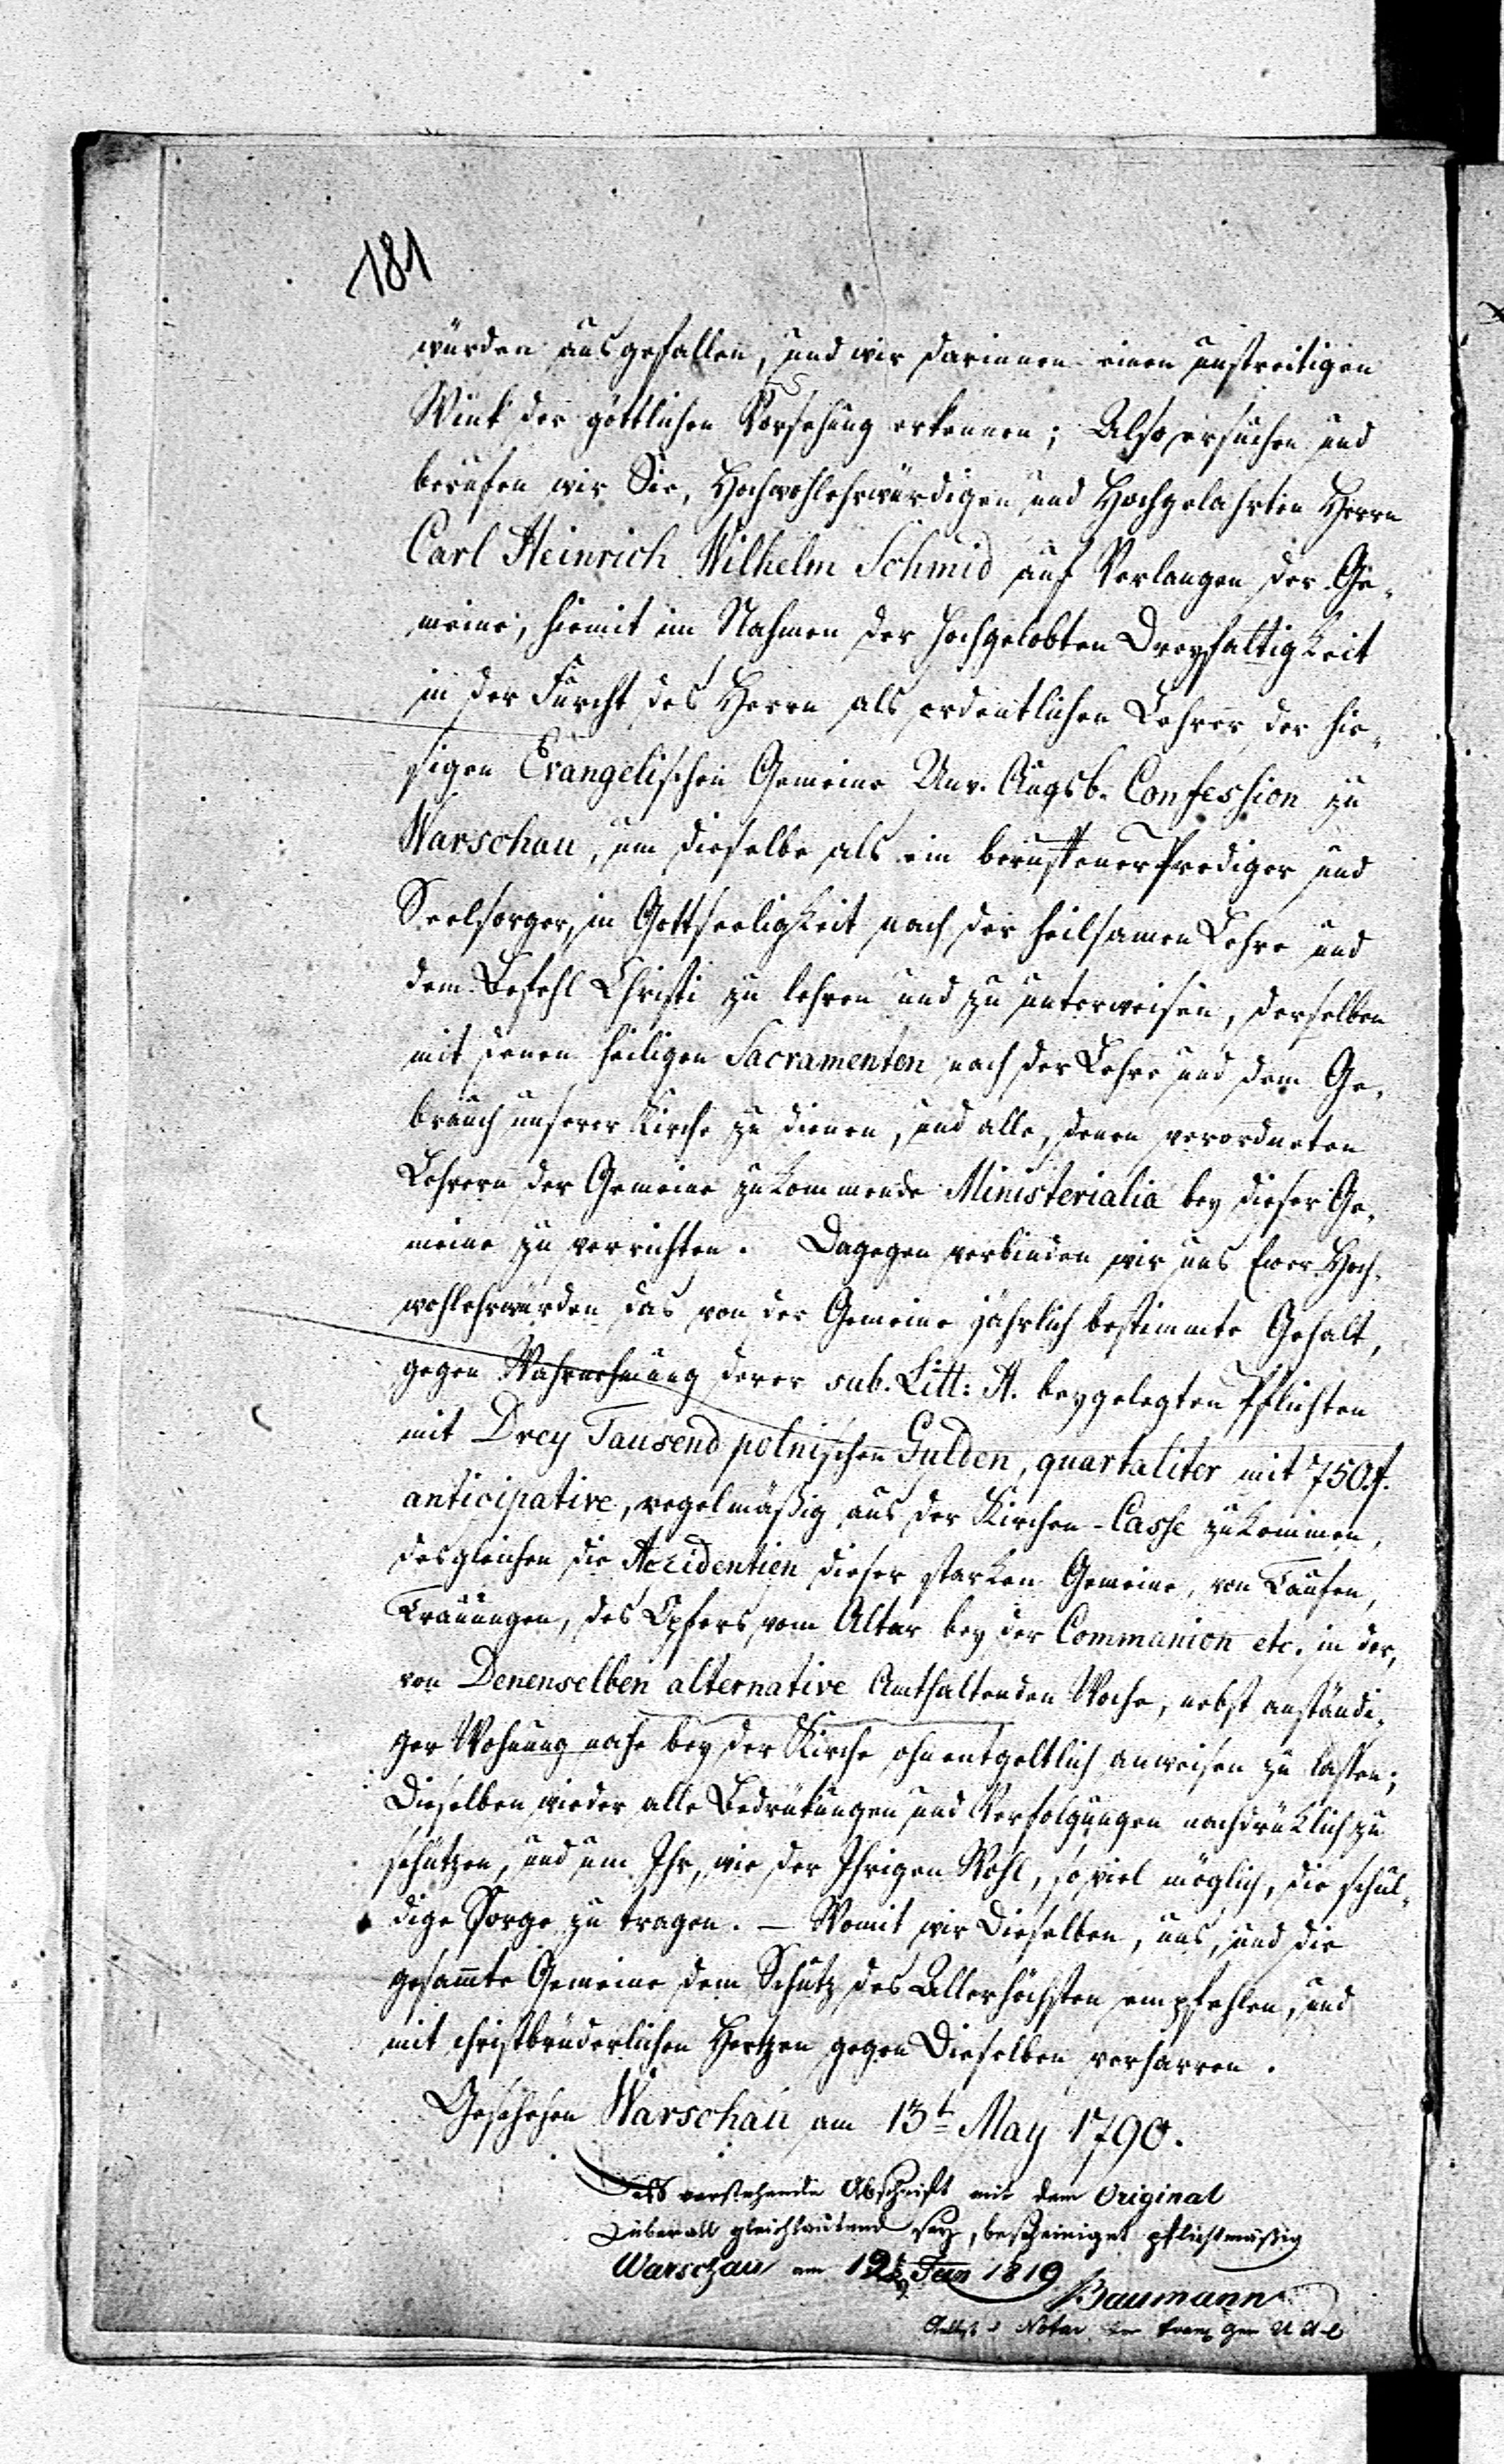 181
würden ausgefallen, und wir darinnen einen unstreitigen
Wink der göttlichen Vorsehung erkennen; Also ersuchen und
berufen wir Sie, Hochwohlehrwürdigen und Hochgelahrten Herrn
Carl Heinrich Wilhelm Schmid auf Verlangen der Ge-
meine, hiemit im Nahmen der Hochgelobten Dreyfaltigkeit
in der Furcht des Herrn als ordentlichen Lehrer der hie-
sigen Evangelischen Gemeine Unv. Augsb. Confession zu
Warschau, um dieselbe als ein beruffener Prediger und
Seelsorger, in Gottseeligkeit nach der heilsamen Lehre und
dem Befehl Christi zu lehren und zu unterweisen, derselben
mit denen heiligen Sacramenten nach der Lehre und dem Ge-
brauch unserer Kirche zu dienen, und alle, denen verordneten
Lehrern der Gemeine zukommende Ministerialia bey dieser Ge-
meine zu verrichten. Dagegen verbinden wir uns Ewer Hoch-
wohlehrwürden das von der Gemeine jährlich bestimmte Gehalt,
gegen Wahrnehmung derer sub. Litt: A. beygelegten Pflichten
mit Drey Tausend polnischen Gulden, quartaliter mit 750.f.
anticipative, regelmäßig aus der Kirchen-Casse zukommen,
desgleichen die Accidentien dieser starken Gemeine, von Taufen,
Trauungen, des Opfers vom Altar bey der Communion etc. in der,
von Denenselben alternative Amthaltenden Woche, nebst anständi-
ger Wohnung nahe bey der Kirche ohnentgeltlich anweisen zu lassen;
Dieselben wieder alle Bedrükungen und Verfolgungen nachdrüklich zu
schützen, und um Ihr, wie der Ihrigen Wohl, so viel möglich, die schul-
dige Sorge zu tragen. — Womit wir Dieselben, uns, und die
gesamte Gemeine dem Schutz des Allerhöchsten empfehlen, und
mit christbrüderlichen Hertzen gegen Dieselben verharren.
Geschehen Warschau am 13t May 1790.
Daß vorstehende Abschrift mit dem Original
überall gleichlautend sey, bescheiniget pflichtmäßig
Warschau am 19 Jun 1819
Baumann
Notar der Gem U A C